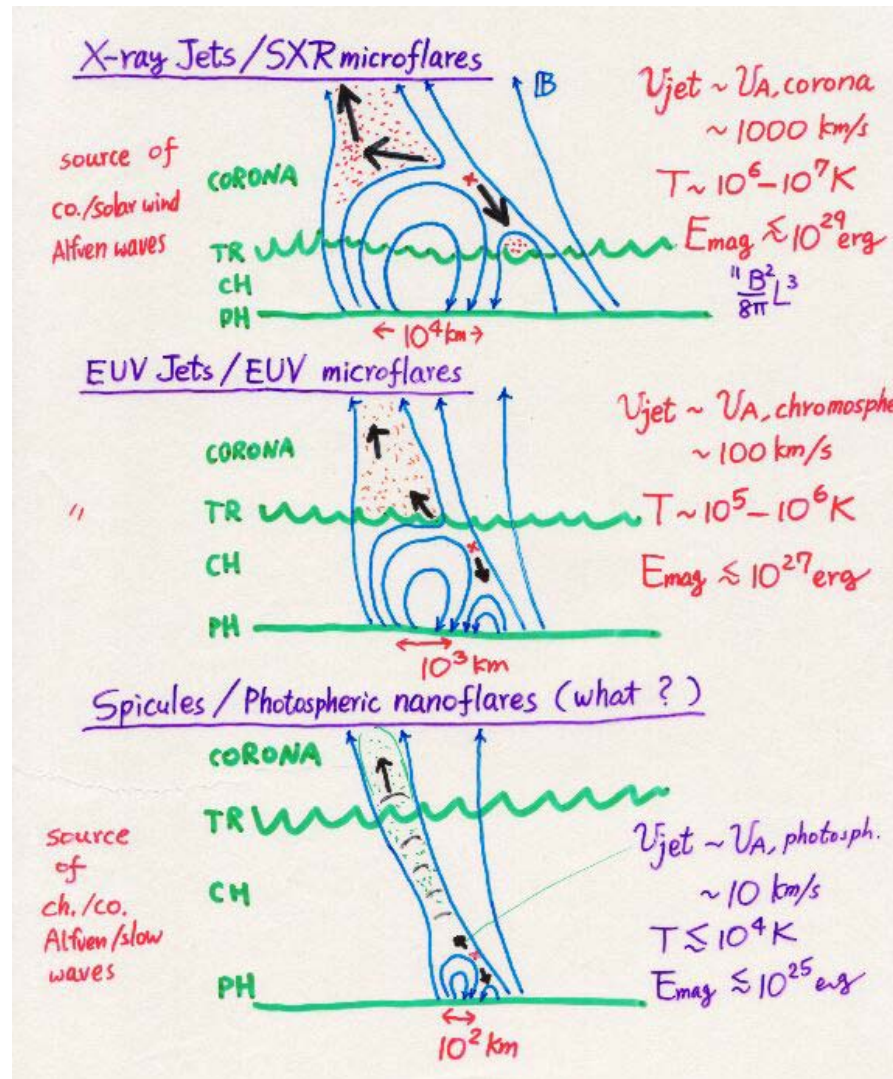 X-ray Jets/SXR microflares
B
source of
co./solar wind
Alfven waves
CORONA
TR
CH
PH
← 10⁴ km →
Vjet ~ VA, corona
~ 1000 km/s
T ~ 10⁶ – 10⁷ K
Emag ≲ 10²⁹ erg
"
B²/8π L³
EUV Jets/EUV microflares
"
CORONA
TR
CH
PH
10³ km
Vjet ~ VA, chromosphe
~ 100 km/s
T ~ 10⁵ – 10⁶ K
Emag ≲ 10²⁷ erg
Spicules/Photospheric nanoflares (what ?)
source
of
ch./co.
Alfven/slow
waves
CORONA
TR
CH
PH
10² km
Vjet ~ VA, photosph.
~ 10 km/s
T ≲ 10⁴ K
Emag ≲ 10²⁵ erg